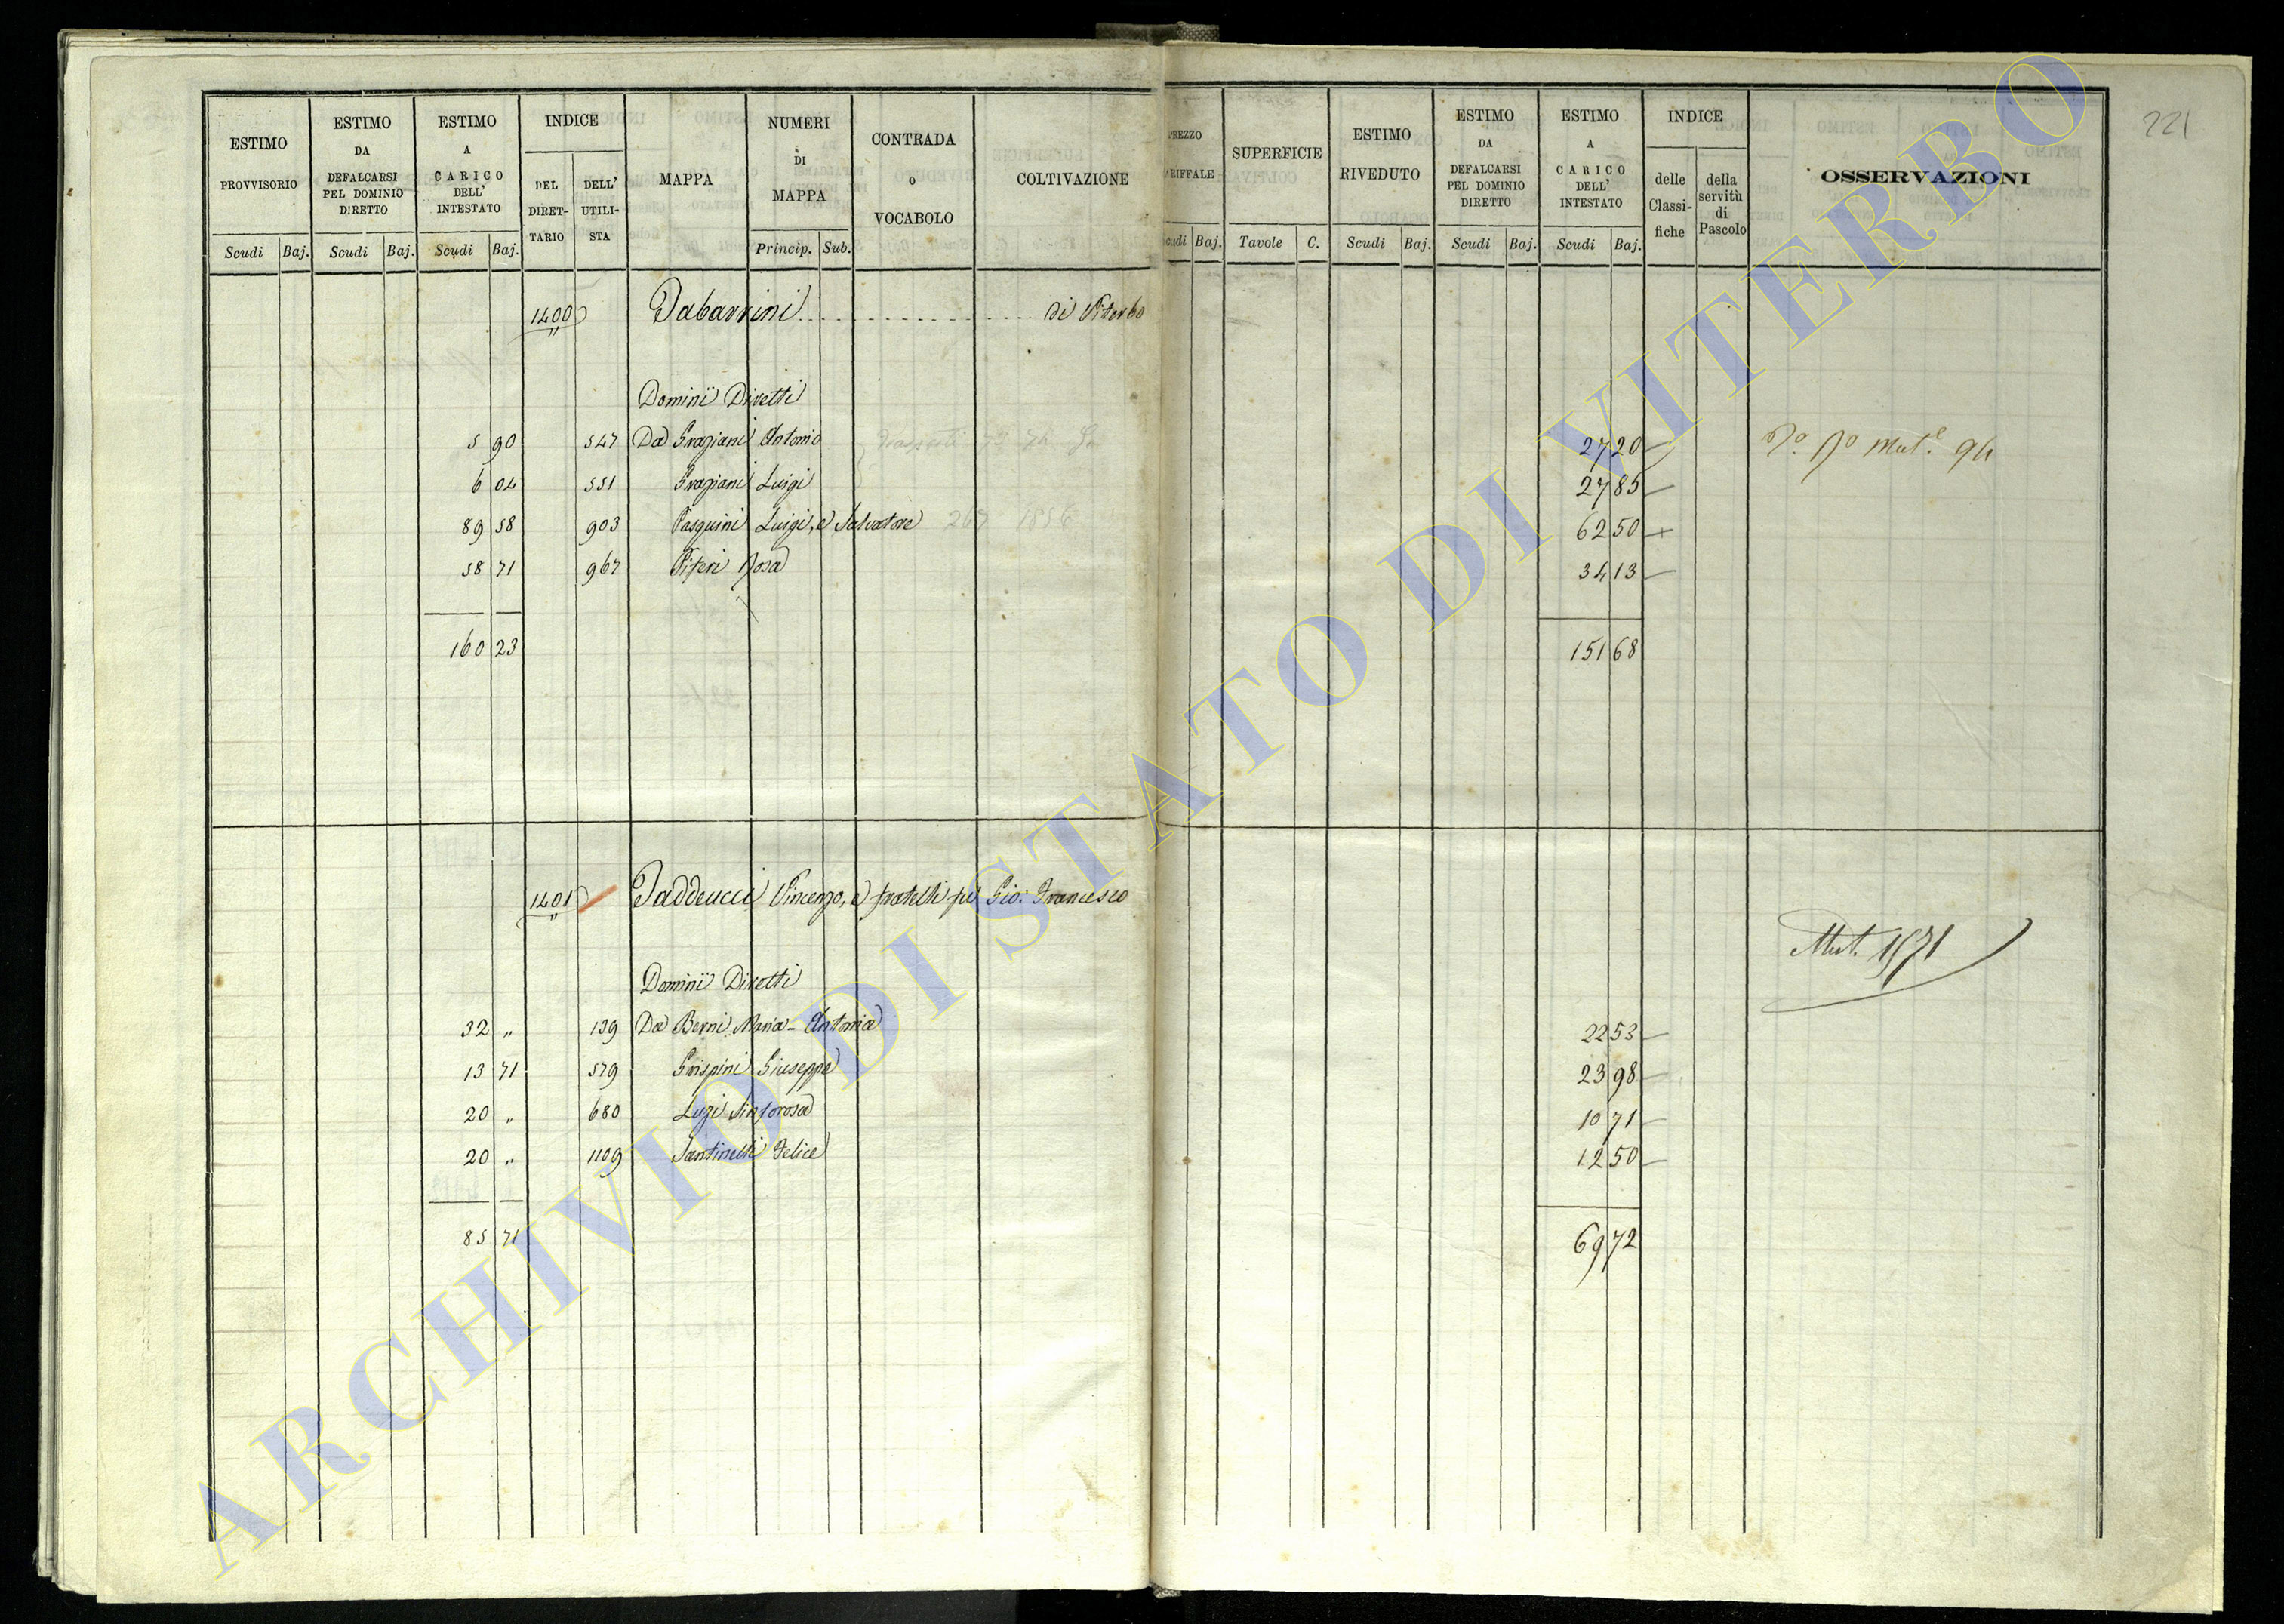 221
ESTIMO PROVVISORIO
Scudi Baj.
ESTIMO DA DEFALCARSI PEL DOMINIO DIRETTO
Scudi Baj.
ESTIMO A CARICO DELL' INTESTATO
Scudi Baj.
INDICE
DEL DIRET- TARIO
DELL' UTILI- STA
MAPPA
NUMERI DI MAPPA
Princip. Sub.
CONTRADA o VOCABOLO
COLTIVAZIONE
PREZZO TARIFFALE
Scudi Baj.
SUPERFICIE
Tavole C.
ESTIMO RIVEDUTO
Scudi Baj.
ESTIMO DA DEFALCARSI PEL DOMINIO DIRETTO
Scudi Baj.
ESTIMO A CARICO DELL' INTESTATO
Scudi Baj.
INDICE
delle Classi- fiche
della servitù di Pascolo
OSSERVAZIONI
1400 Tabarrini di Viterbo
Dominii Diretti
5 90 547 Da Graziani Antonio 27 20 Mut.e 94
6 04 551 Graziani Luigi 27 85
89 58 903 Pasquini Luigi, e Salvatore 267 1856 62 50
58 71 967 Piferi Rosa 34 13
160 23 151 68
1401 Taddeucci Vincenzo, e fratelli qu Gio: Francesco
Mut. 1571
Dominii Diretti
32 „ 139 Da Berni Maria-Antonia 22 53
13 71 579 Grispini Giuseppe 23 98
20 „ 680 Luzi Sinforosa 10 71
20 „ 1109 Santinelli Felice 12 50
85 71 69 72
ARCHIVIO DI STATO DI VITERBO